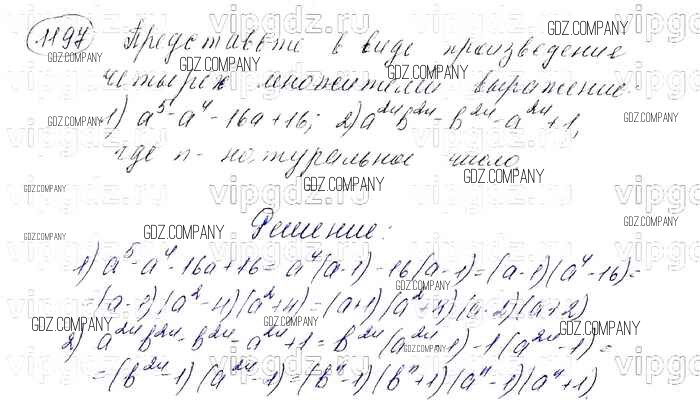 1197 Представьте в виде произведения
четырех множителей выражение:
1) a⁵-a⁴-16a+16; 2) a²ⁿb²ⁿ-b²ⁿ-a²ⁿ+1,
где n - натуральное число
Решение:
1) a⁵-a⁴-16a+16 = a⁴(a-1)-16(a-1)=(a-1)(a⁴-16)=
=(a-1)(a²-4)(a²+4)=(a+1)(a²+4)(a-2)(a+2)
2) a²ⁿb²ⁿ-b²ⁿ-a²ⁿ+1= b²ⁿ(a²ⁿ-1)-1(a²ⁿ-1)=
=(b²ⁿ-1)(a²ⁿ-1)=(bⁿ-1)(bⁿ+1)(aⁿ-1)(aⁿ+1)